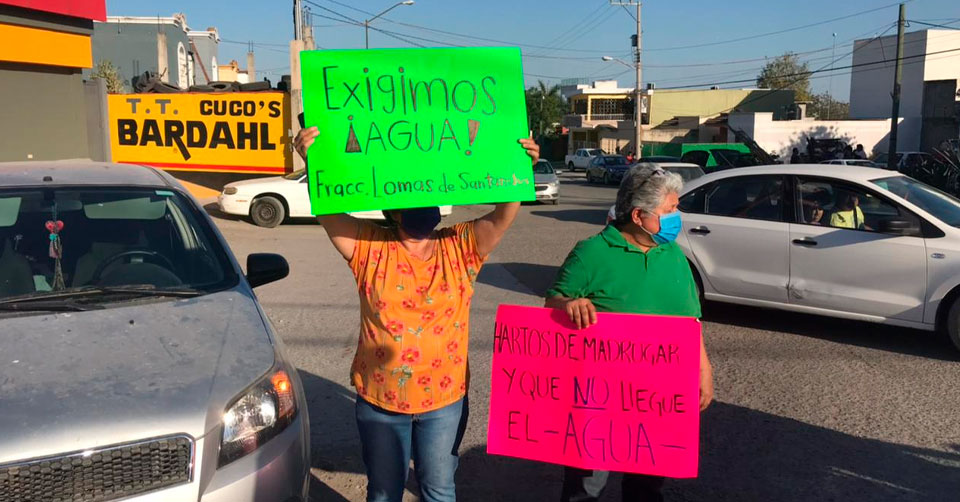 T.T. CUCO'S
BARDAHL
Exigimos
¡AGUA!
Fracc. Lomas de
HARTOS DE MADRUGAR
Y QUE NO LLEGUE
EL - AGUA -